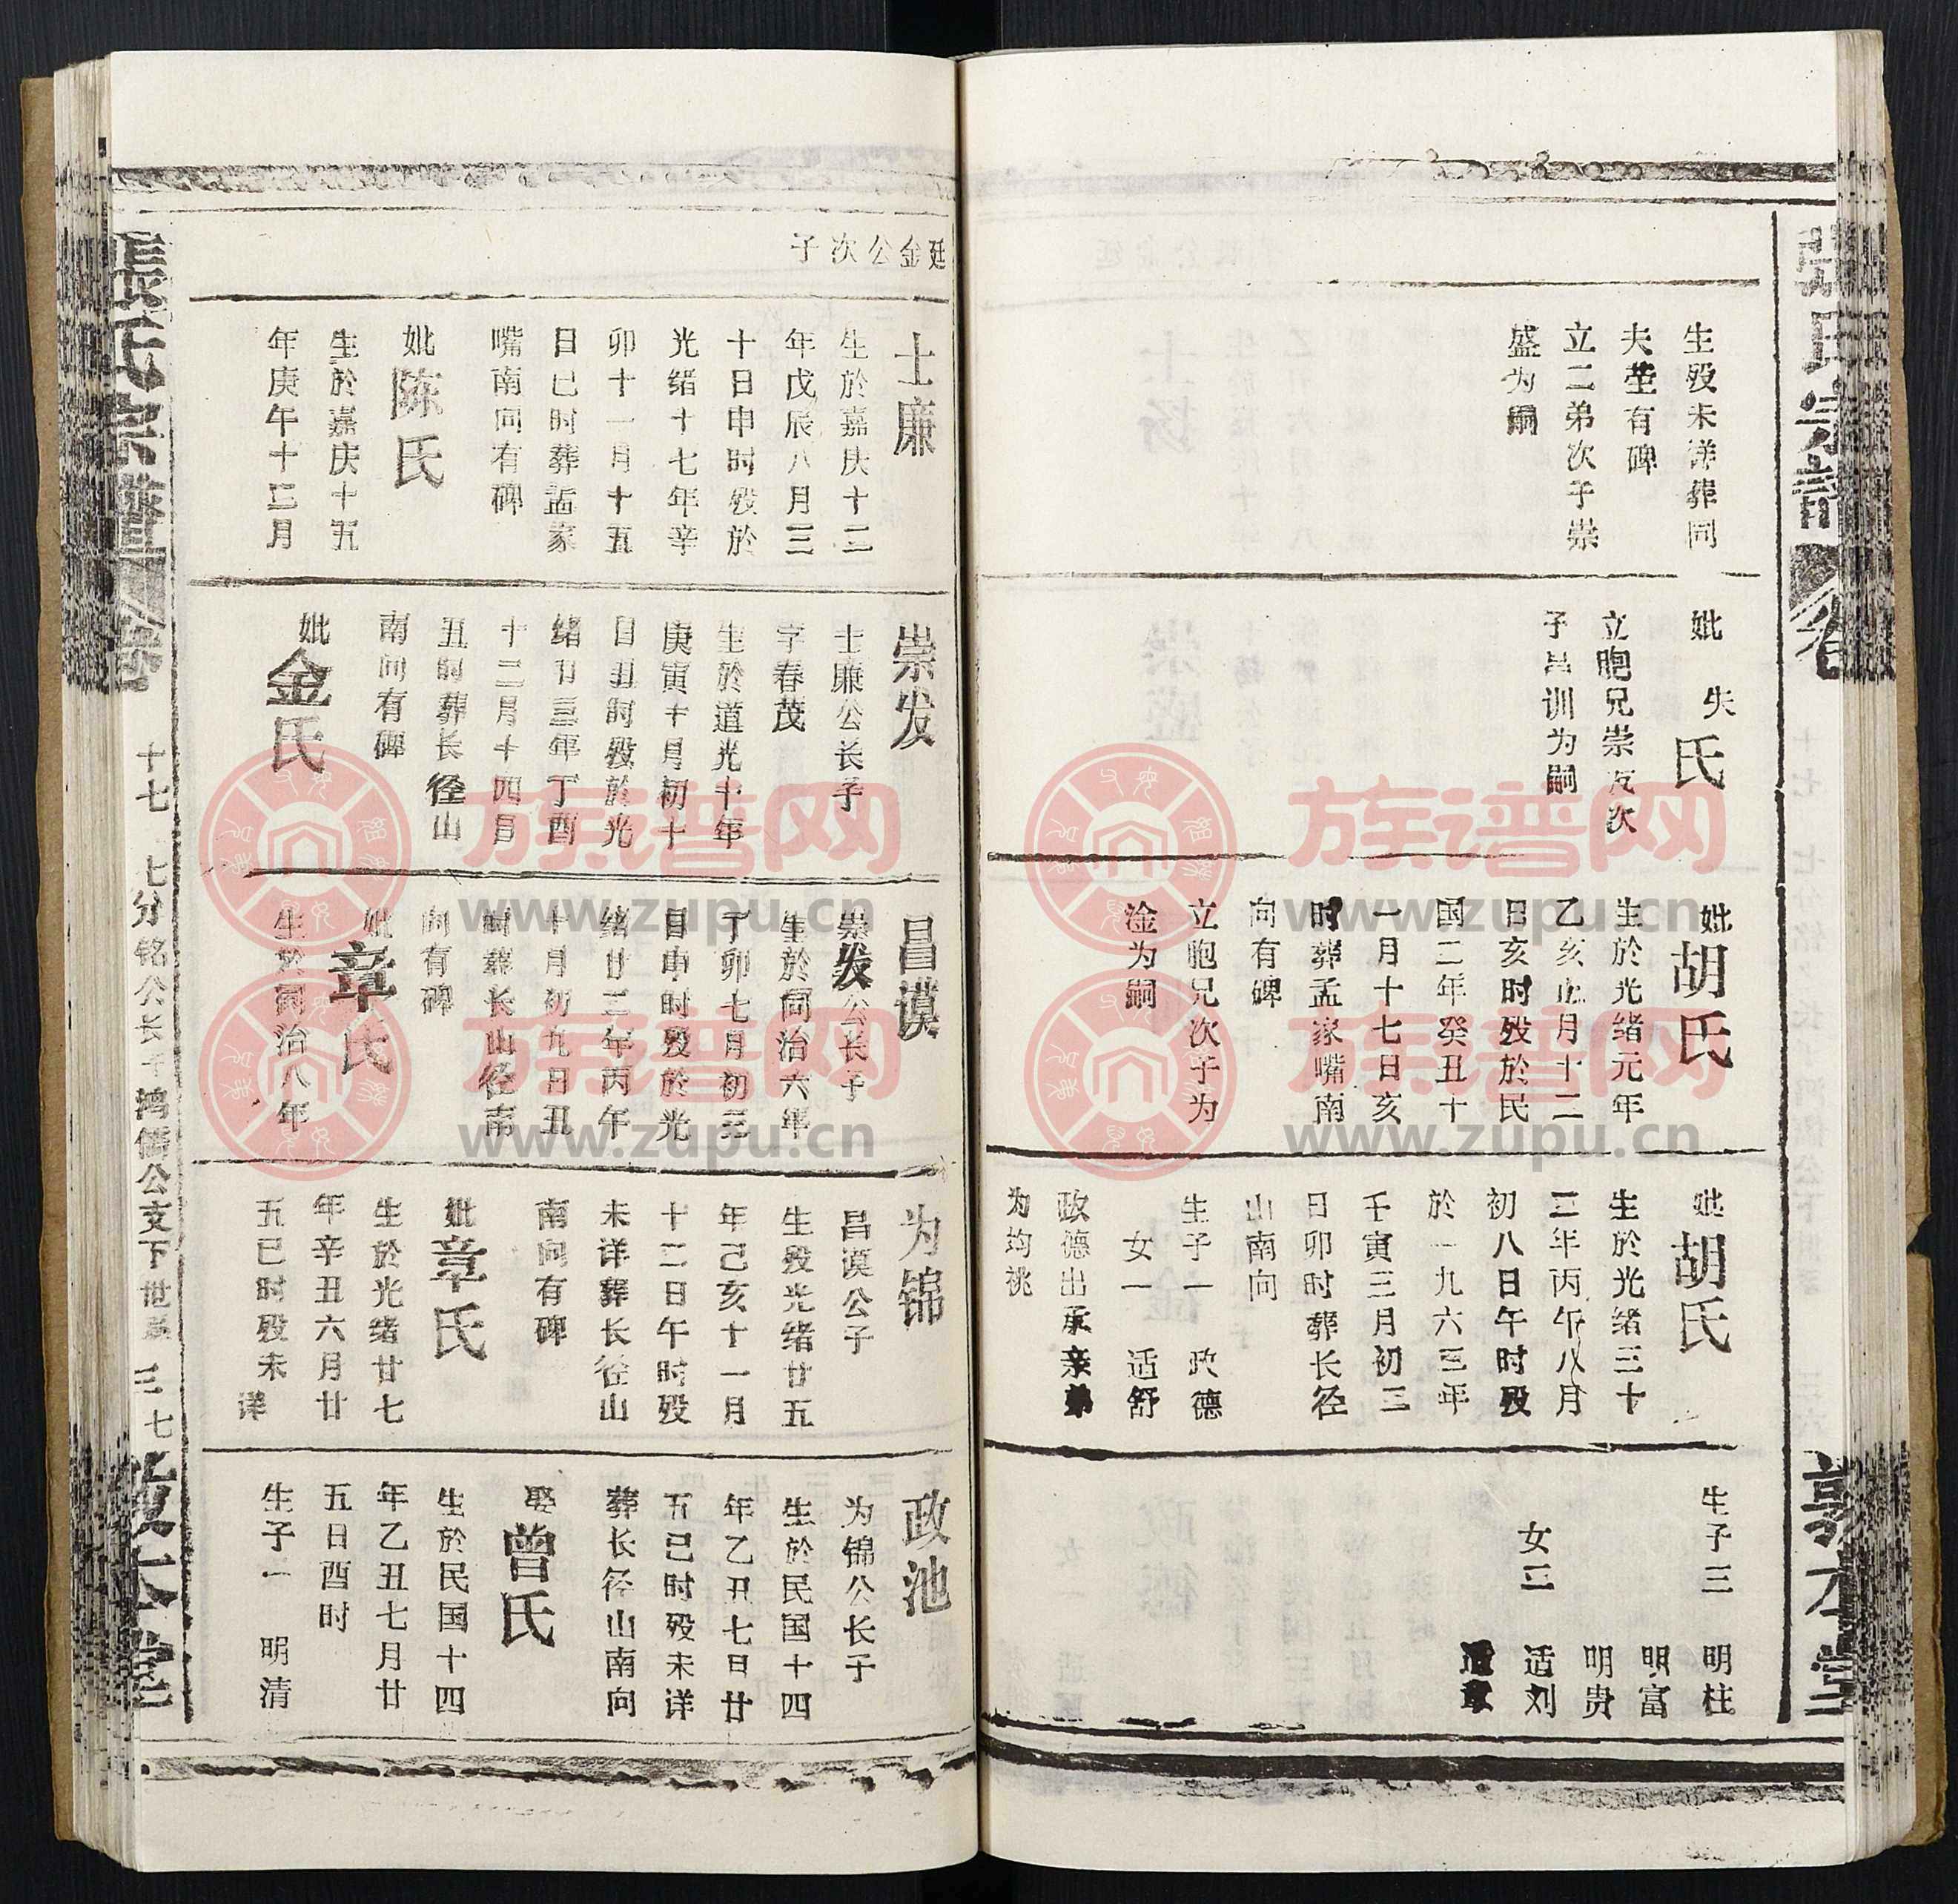 张氏宗谱
卷
敦本堂
生殁未详葬同
夫茔有碑
立二弟次子崇
盛为嗣
妣 失氏
立胞兄崇发次
子昌训为嗣
妣胡氏
生於光绪元年
乙亥正月十二
日亥时殁於民
国二年癸丑十
一月十七日亥
时葬孟家嘴南
向有碑
立胞兄次子为
淦为嗣
妣胡氏
生於光绪三十
二年丙午八月
初八日午时殁
於一九六三年
壬寅三月初三
日卯时葬长径
山南向
生子一 政德
女一 适舒
政德出承亲弟
为均祧
生子三 明柱
明富
明贵
女二 适刘
廷金公次子
士廉
生於嘉庆十三
年戊辰八月三
十日申时殁於
光绪十七年辛
卯十一月十五
日巳时葬孟家
嘴南向有碑
妣陈氏
生於嘉庆十五
年庚午十二月
崇发
士廉公长子
字春茂
生於道光十年
庚寅十月初十
日丑时殁於光
绪廿三年丁酉
十二月十四日
丑时葬长径山
南向有碑
妣金氏
昌谟
崇发公长子
生於同治六年
丁卯七月初三
日申时殁於光
绪廿二年丙午
十月初九日丑
时葬长山径南
向有碑
妣章氏
生於同治八年
为锦
昌谟公子
生殁光绪廿五
年己亥十一月
十二日午时殁
未详葬长径山
南向有碑
妣章氏
生於光绪廿七
年辛丑六月廿
五巳时殁未详
政池
为锦公长子
生於民国十四
年乙丑七日廿
五巳时殁未详
葬长径山南向
娶曾氏
生於民国十四
年乙丑七月廿
五日酉时
生子一 明清
張氏宗譜
卷
十七 七分铭公长子鸿儒公支下世系 三七
敦本堂
族谱网
www.zupu.cn
族谱网
www.zupu.cn
族谱网
www.zupu.cn
族谱网
www.zupu.cn